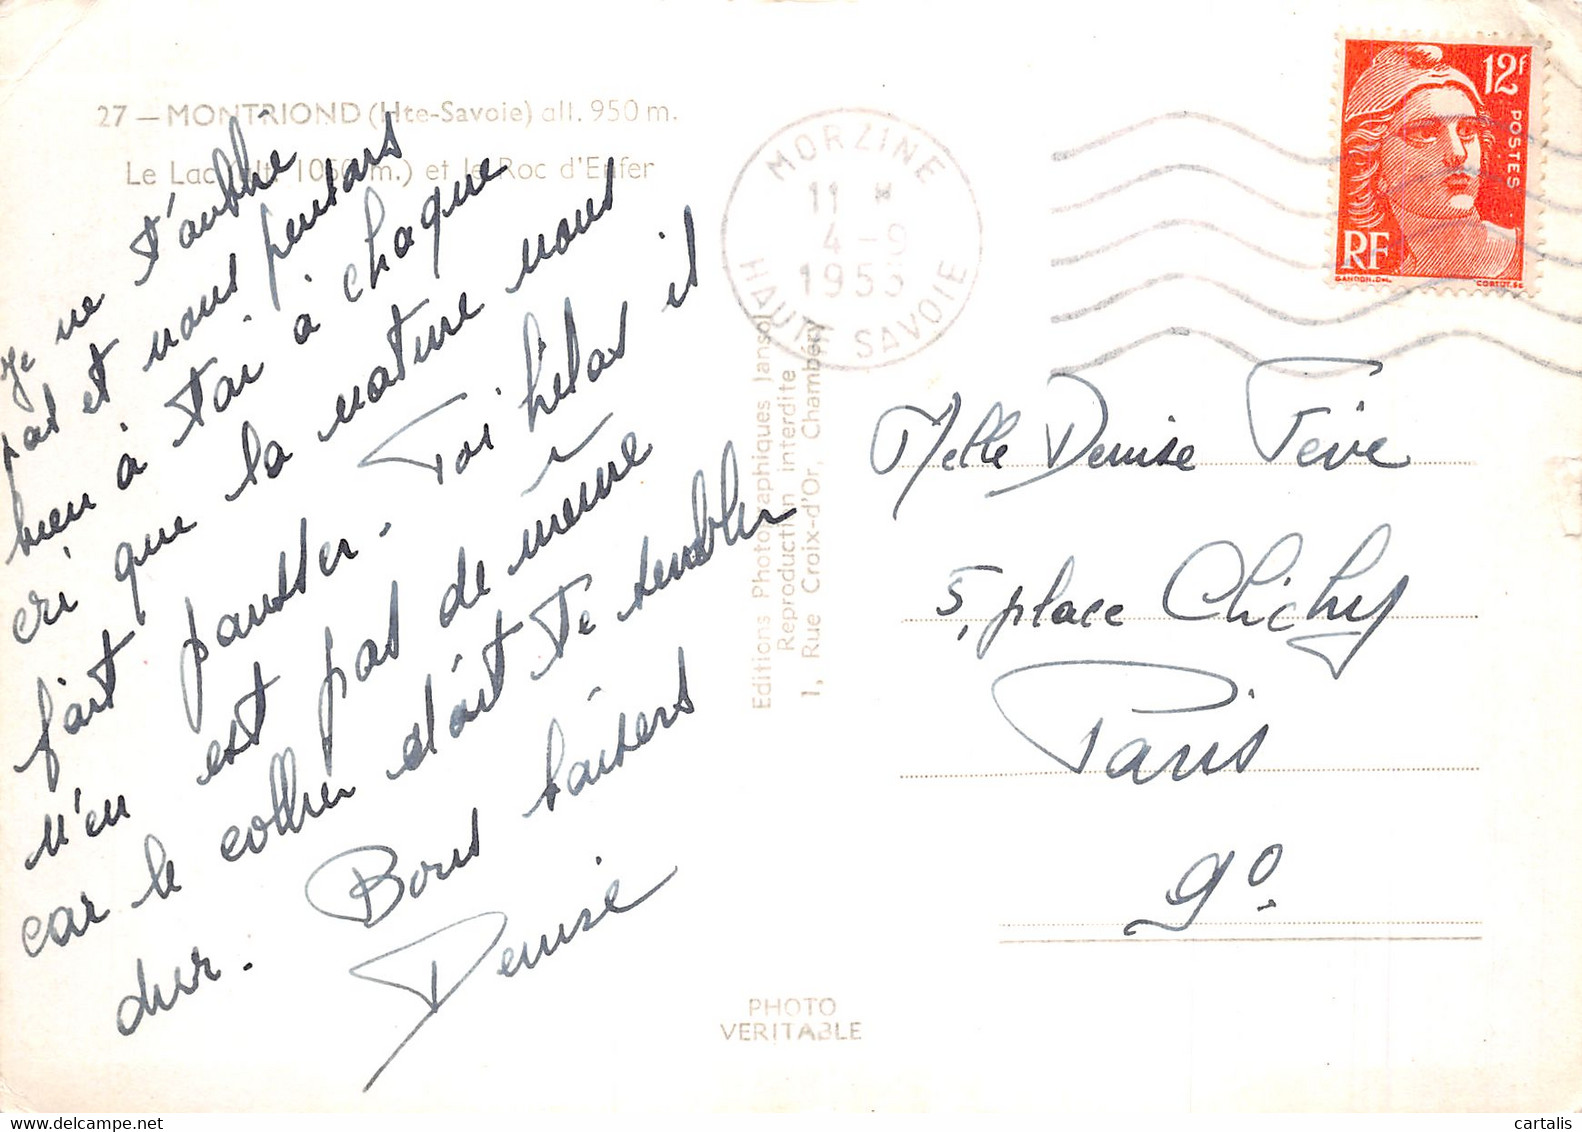 27 — MONTRIOND (Hte-Savoie) alt. 950 m.
Le Lac (alt. 1050 m.) et le Roc d'Enfer
Je ne t'oublie
pas et nous pensons
bien à toi à chaque
cri que la nature nous
fait pousser. Toi hélas il
n'en est pas de même
car le collier doit te sembler
dur. Bons baisers
Denise
Editions Photographiques Jansol
Reproduction interdite
1, Rue Croix-d'Or, Chambéry
MORZINE
11 *
4-9
1953
HAUTE SAVOIE
12f
POSTES
RF
GANDON.DEL.
CORTOT.SC
Melle Denise Feive
5, place Clichy
Paris
9o
PHOTO
VERITABLE
cartalis